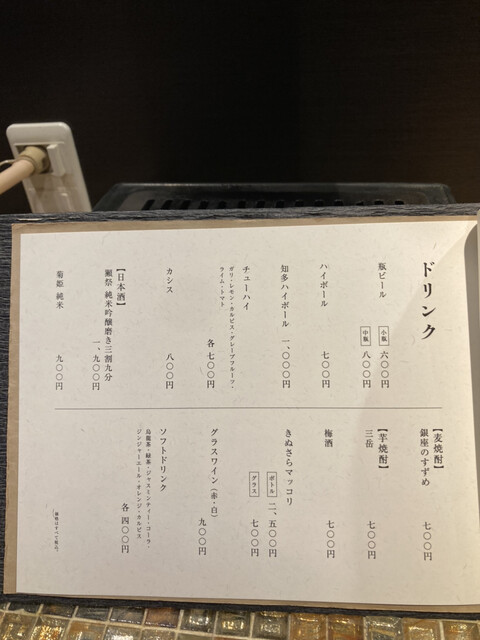 ドリンク
瓶ビール
小瓶 六〇〇円
中瓶 八〇〇円
ハイボール
七〇〇円
知多ハイボール 一、〇〇〇円
チューハイ
ガリ・レモン・カルピス・グレープフルーツ・
ライム・トマト
各七〇〇円
カシス
八〇〇円
【日本酒】
獺祭 純米吟醸磨き三割九分
一、九〇〇円
菊姫 純米
九〇〇円
【麦焼酎】
銀座のすずめ
七〇〇円
【芋焼酎】
三岳
七〇〇円
梅酒
七〇〇円
きぬさらマッコリ
ボトル 二、五〇〇円
グラス 七〇〇円
グラスワイン（赤・白）
九〇〇円
ソフトドリンク
烏龍茶・緑茶・ジャスミンティー・コーラ・
ジンジャーエール・オレンジ・カルピス
各四〇〇円